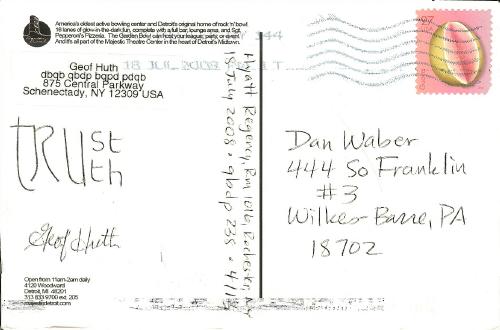 America's oldest active bowling center and Detroit's original home of rock 'n' bowl.
16 lanes of glow-in-the-dark fun, complete with a full bar, lounge area, and Sgt.
Pepperoni's Pizzeria. The Garden Bowl can host your league, party, or event.
And it's all part of the Majestic Theatre Center in the heart of Detroit's Midtown.
144
18 JUL 2008
Geof Huth
dbqb qbdp bqpd pdqb
875 Central Parkway
Schenectady, NY 12309 USA
tRUst
th
Geof Huth
Open from 11am-2am daily
4120 Woodward
Detroit, MI 48201
313 833 9700 ext. 205
majesticdetroit.com
Hyatt Regency, Rm 1016, Rochester, NY
18 July 2008 • qbdp 238 •
Dan Waber
444 So Franklin
#3
Wilkes-Barre, PA
18702